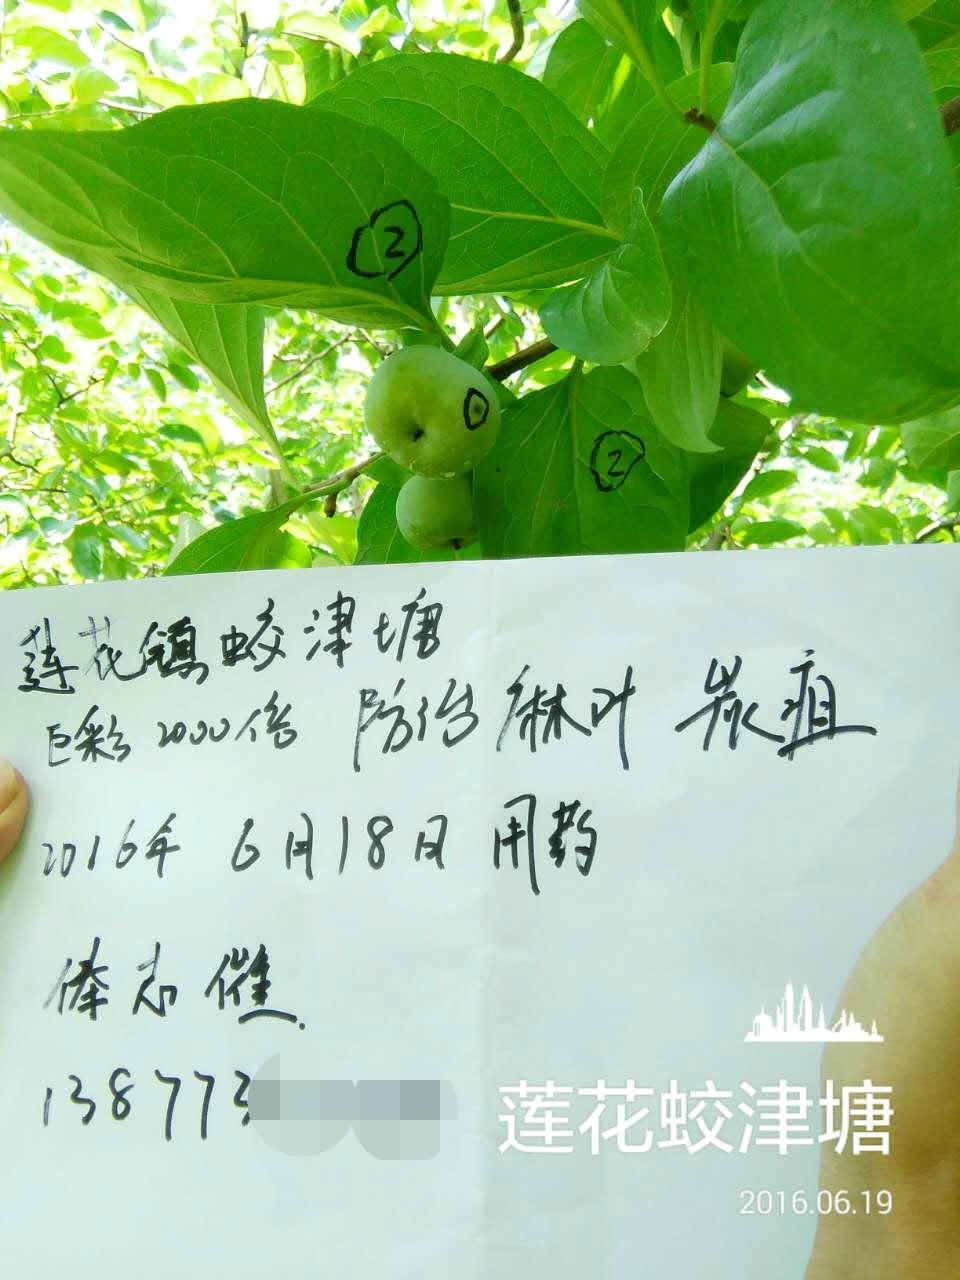 ②
②
莲花镇蛟津塘
巨彩2000倍 防治麻叶 炭疽
2016年 6月18日 用药
俸志催
138773
莲花蛟津塘
2016.06.19